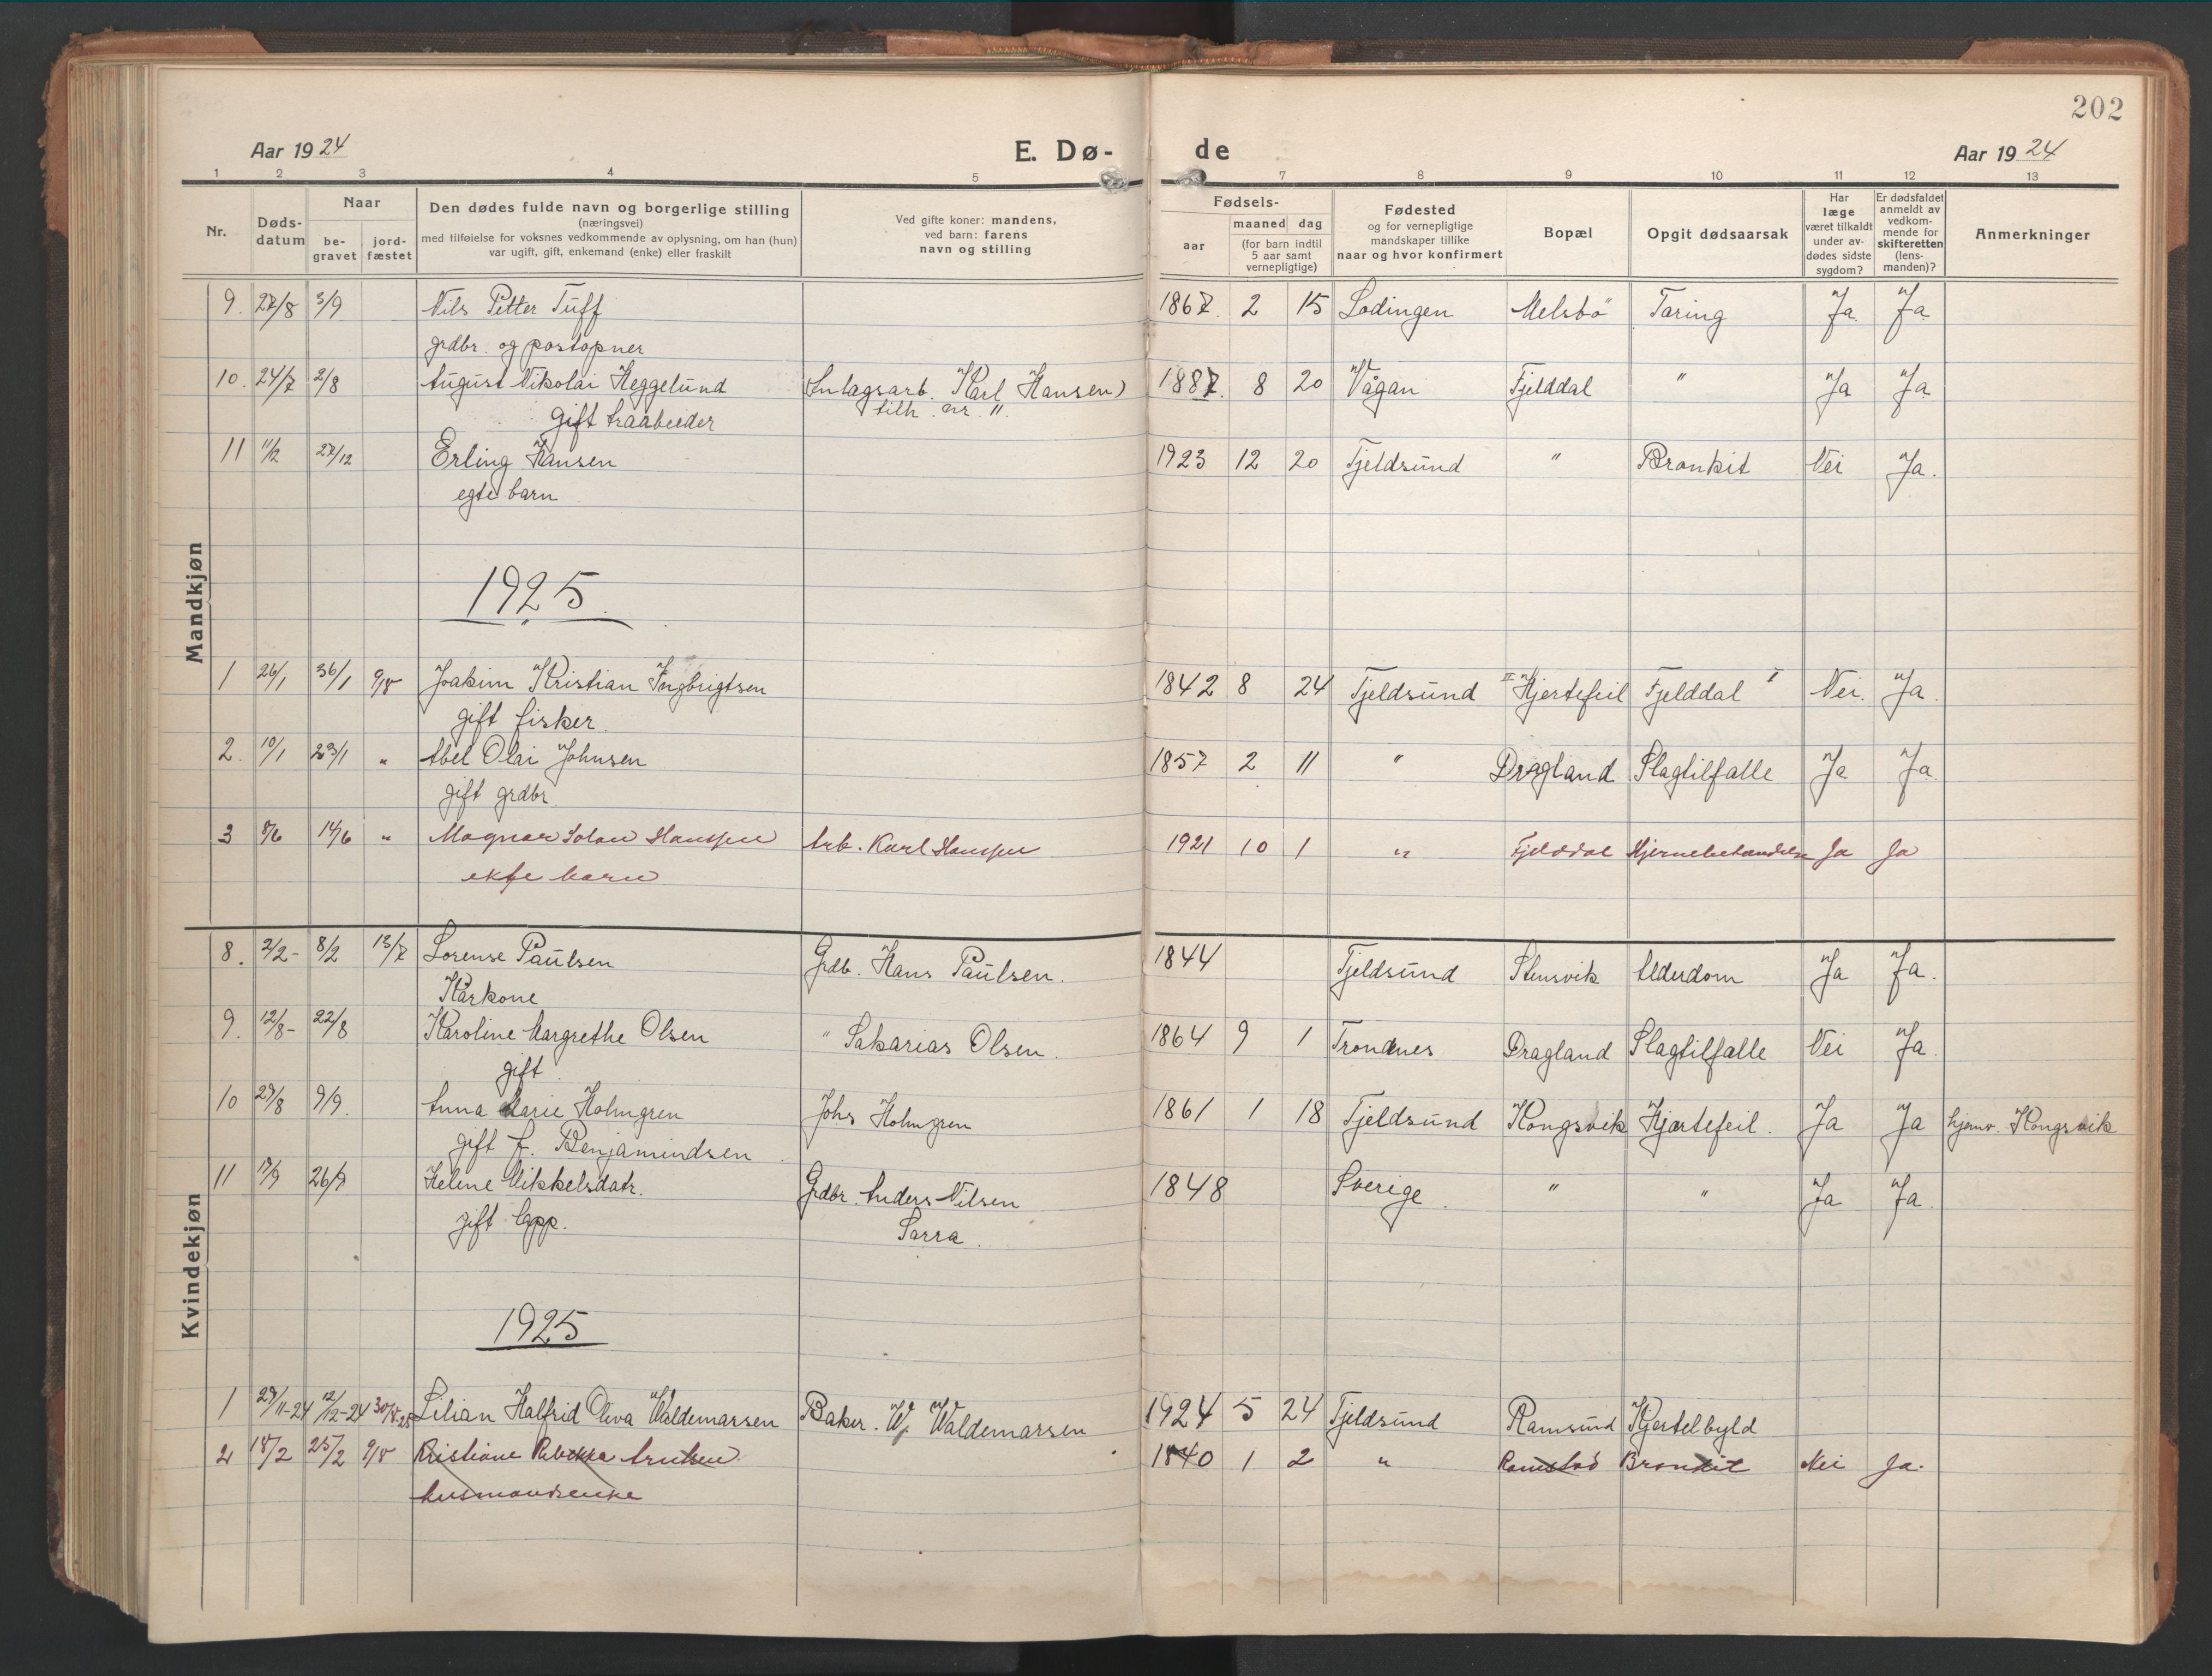 202
Aar 1924 E. Dø- de Aar 1924
1 2 3 4 5 7 8 9 10 11 12 13
Nr.
Døds-datum
Naar
be-gravet
jord-fæstet
Den dødes fulde navn og borgerlige stilling
(næringsvei)
med tilføielse for voksnes vedkommende av oplysning, om han (hun)
var ugift, gift, enkemand (enke) eller fraskilt
Ved gifte koner: mandens,
ved barn: farens
navn og stilling
Fødsels-
aar
maaned dag
(for barn indtil
5 aar samt
vernepligtige)
Fødested
og for vernepligtige
mandskaper tillike
naar og hvor konfirmert
Bopæl
Opgit dødsaarsak
Har
læge
været tilkaldt
under av-
dødes sidste
sygdom?
Er dødsfaldet
anmeldt av
vedkom-
mende for
skifteretten
(lens-
manden)?
Anmerkninger
Mandkjøn
9. 27/8 3/9 Nils Petter Tuff 1867. 2 15 Lodingen Melsbö Taring Ja Ja
grdbr. og postopner
10. 24/7 2/8 August Nikolai Heggelund (Anlagsarb. Karl Hansen) 1887. 8 20 Vågan Fjelddal " Ja Ja
gift traabeider tilh. nr. 11.
11 11/2 27/12 Erling Hansen 1923 12 20 Tjeldsund " Bronkit Nei Ja.
egte barn
1925.
1 26/1 36/1 9/8 Joakim Kristian Ingbrigtsen 1842 8 24 Tjeldsund II Hjertefeil Fjelddal I Nei. Ja.
gift fisker.
2. 10/1 23/1 " Abel Olai Johnsen 1857 2 11 " Dragland Slagtilfalle Ja Ja.
gift grdbr.
3 8/6 14/6 " Magnar Johan Hanssen Arb. Karl Hanssen 1921 10 1 " Fjelddal Hjernebetændelse Ja Ja
ekte barn
Kvindekjøn
8. 2/2- 8/2 13/7 Lorense Paulsen Grdb. Hans Paulsen. 1844 Tjeldsund Stensvik Alderdom Ja Ja.
Kårkone
9. 12/8- 22/8 Karoline Margrethe Olsen " Sakarias Olsen. 1864 9 1 Trondnes Dragland Slagtilfalle Nei Ja.
gift.
10 29/8 9/9. Anna Marie Holmgren Johs Holmgren 1861 1 18 Tjeldsund Kongsvik Hjartefeil. Ja Ja hjemv. Kongsvik
gift f. Benjamindsen
11 17/9 26/9 Helene Mikkelsdatr. Grdbr. Anders Nilsen 1848 Sverige. " " Ja Ja.
gift lapp. Sarra.
1925
1 29/11-24 12/12-24 30/8-25 Lilian Halfrid Oliva Waldemarsen Baker. W. Waldemarsen 1924 5 24 Tjeldsund Ramsund Kjertelbyld
2 18/2 25/2 9/8 Kristiane Rebekka Arntsen 1840 1 2 " Ramstad Bronkit Nei Ja.
husmandsenke